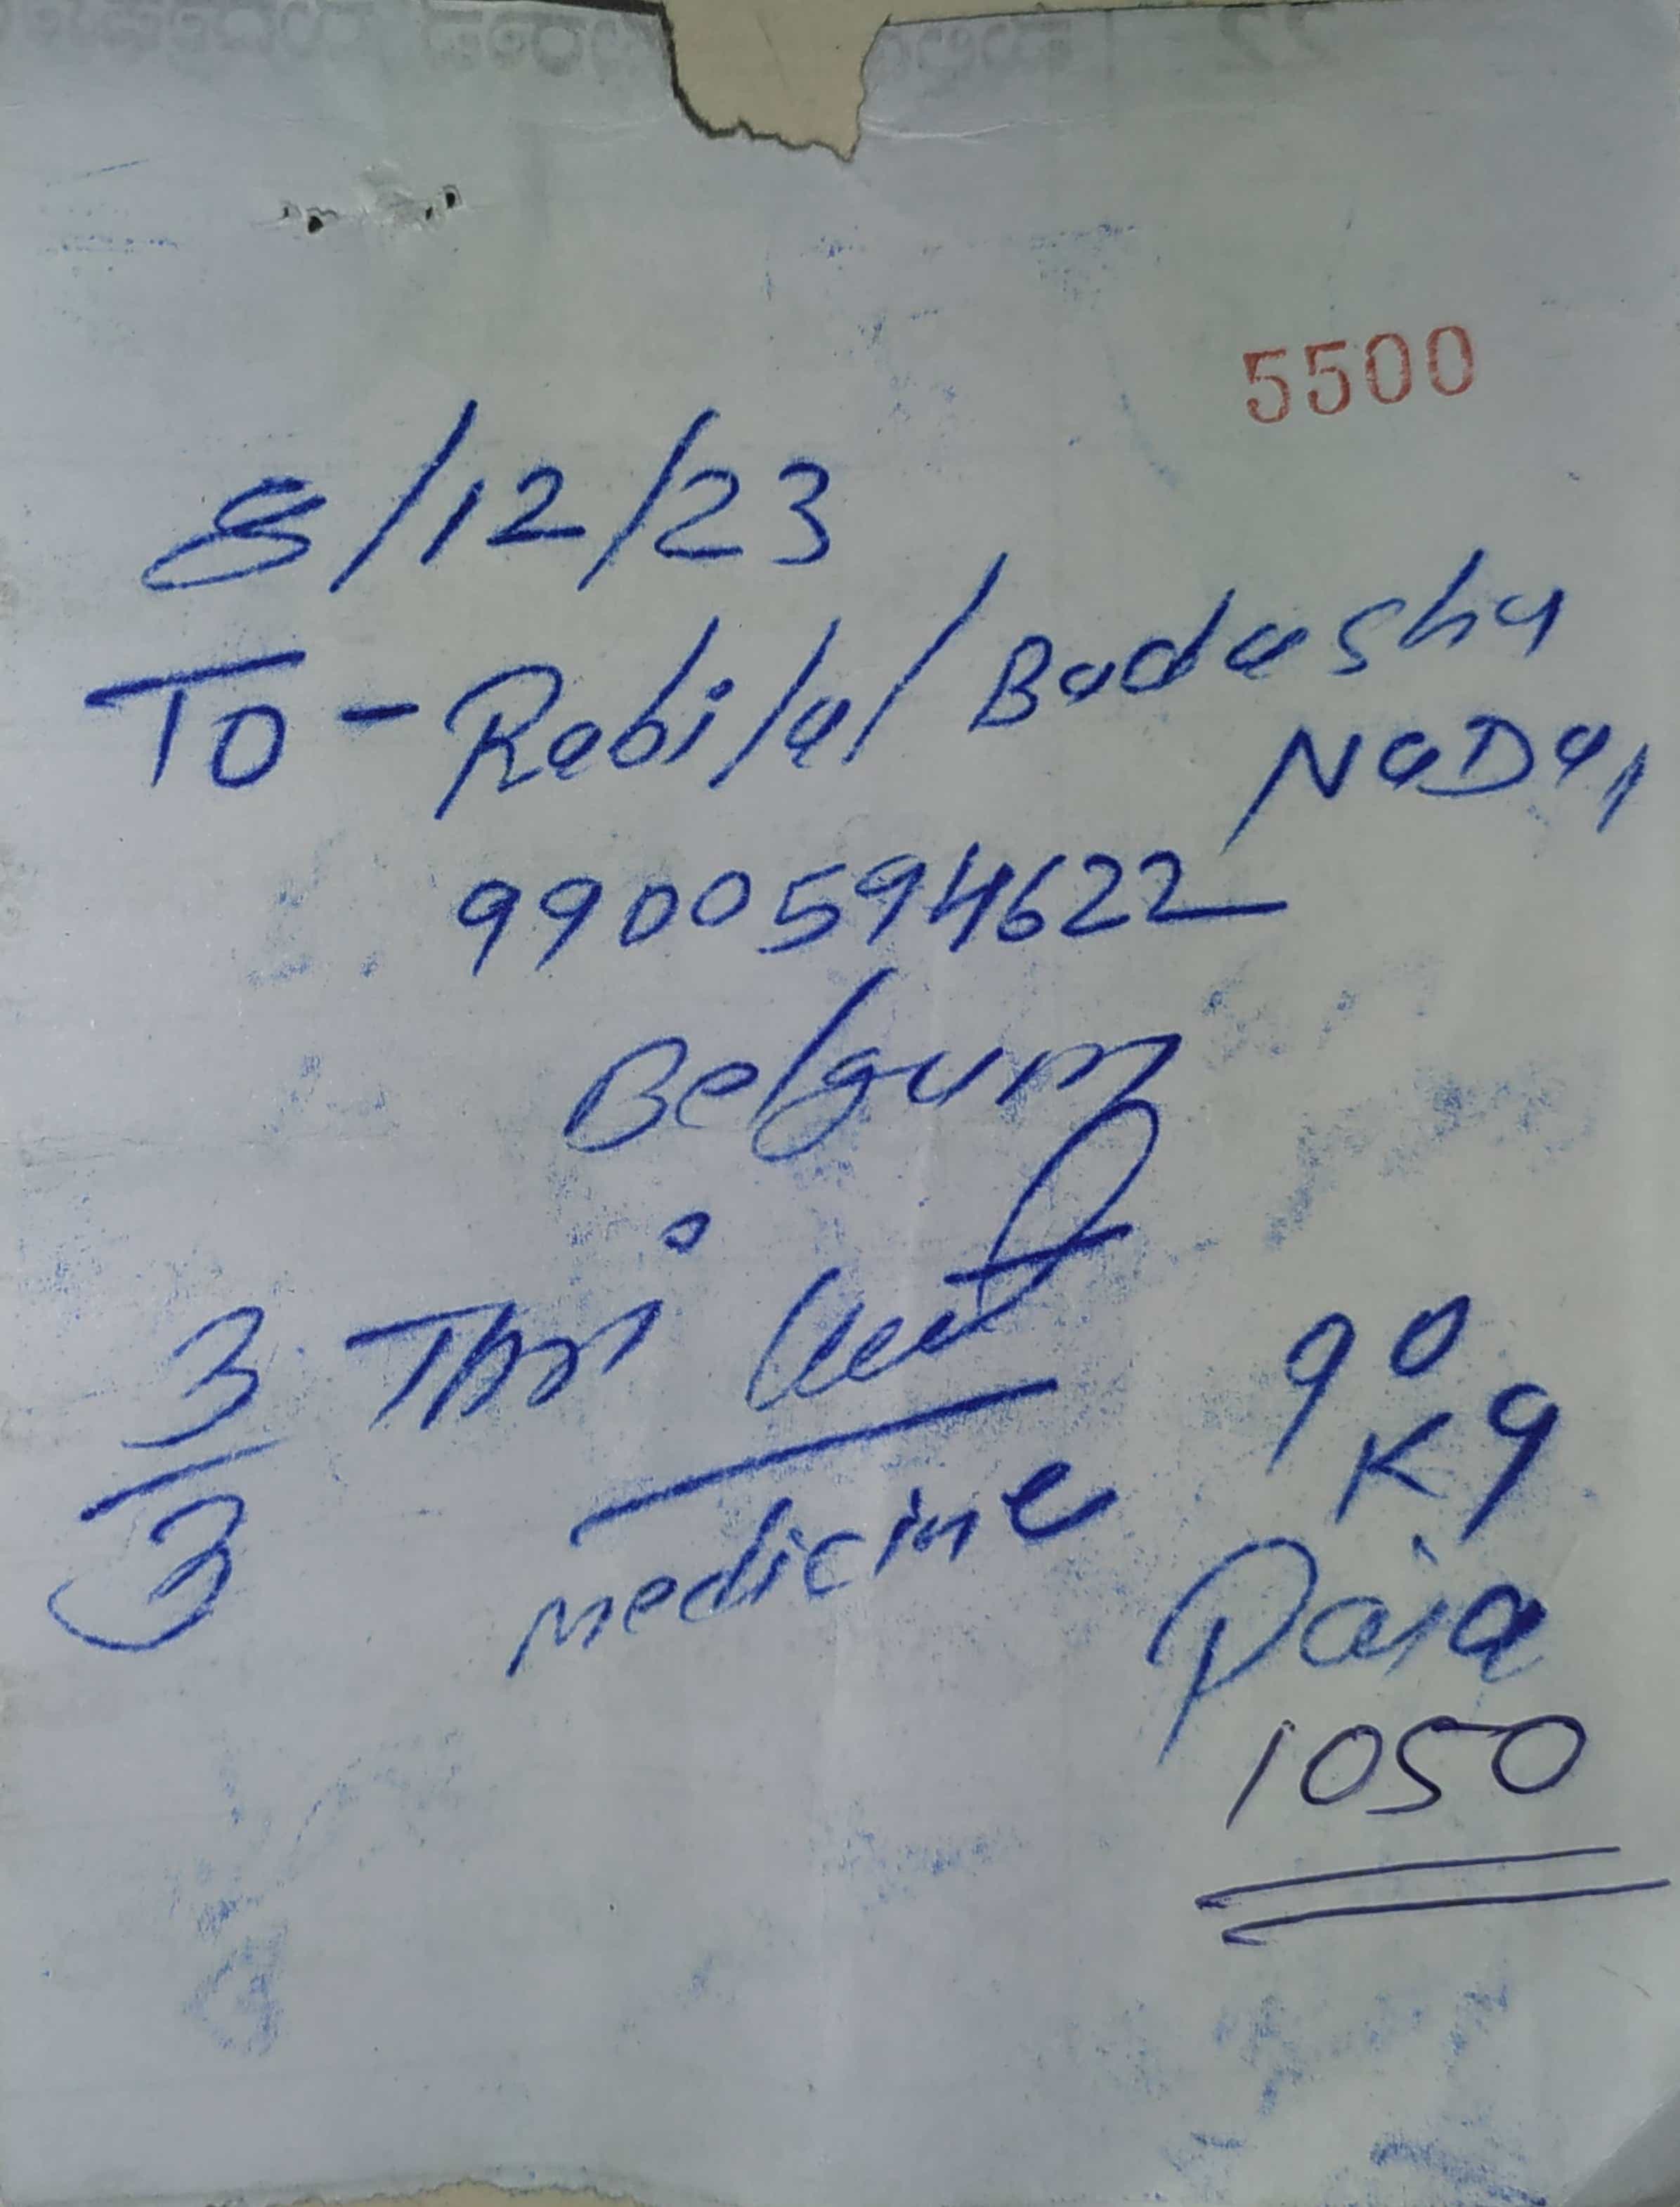 5500
8/12/23
To - Rabilal Badasha
NaDa,
9900594622
Belgum
3
3
medicine
90
Kg
Paia
1050